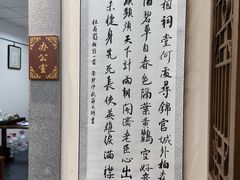 祠堂何處尋錦官城外柏森
階碧草自春色隔葉黃鸝空好音
天下計兩朝開濟老臣心出
未捷身先死長使英雄淚滿襟
杜甫蜀相詩一首
办公室